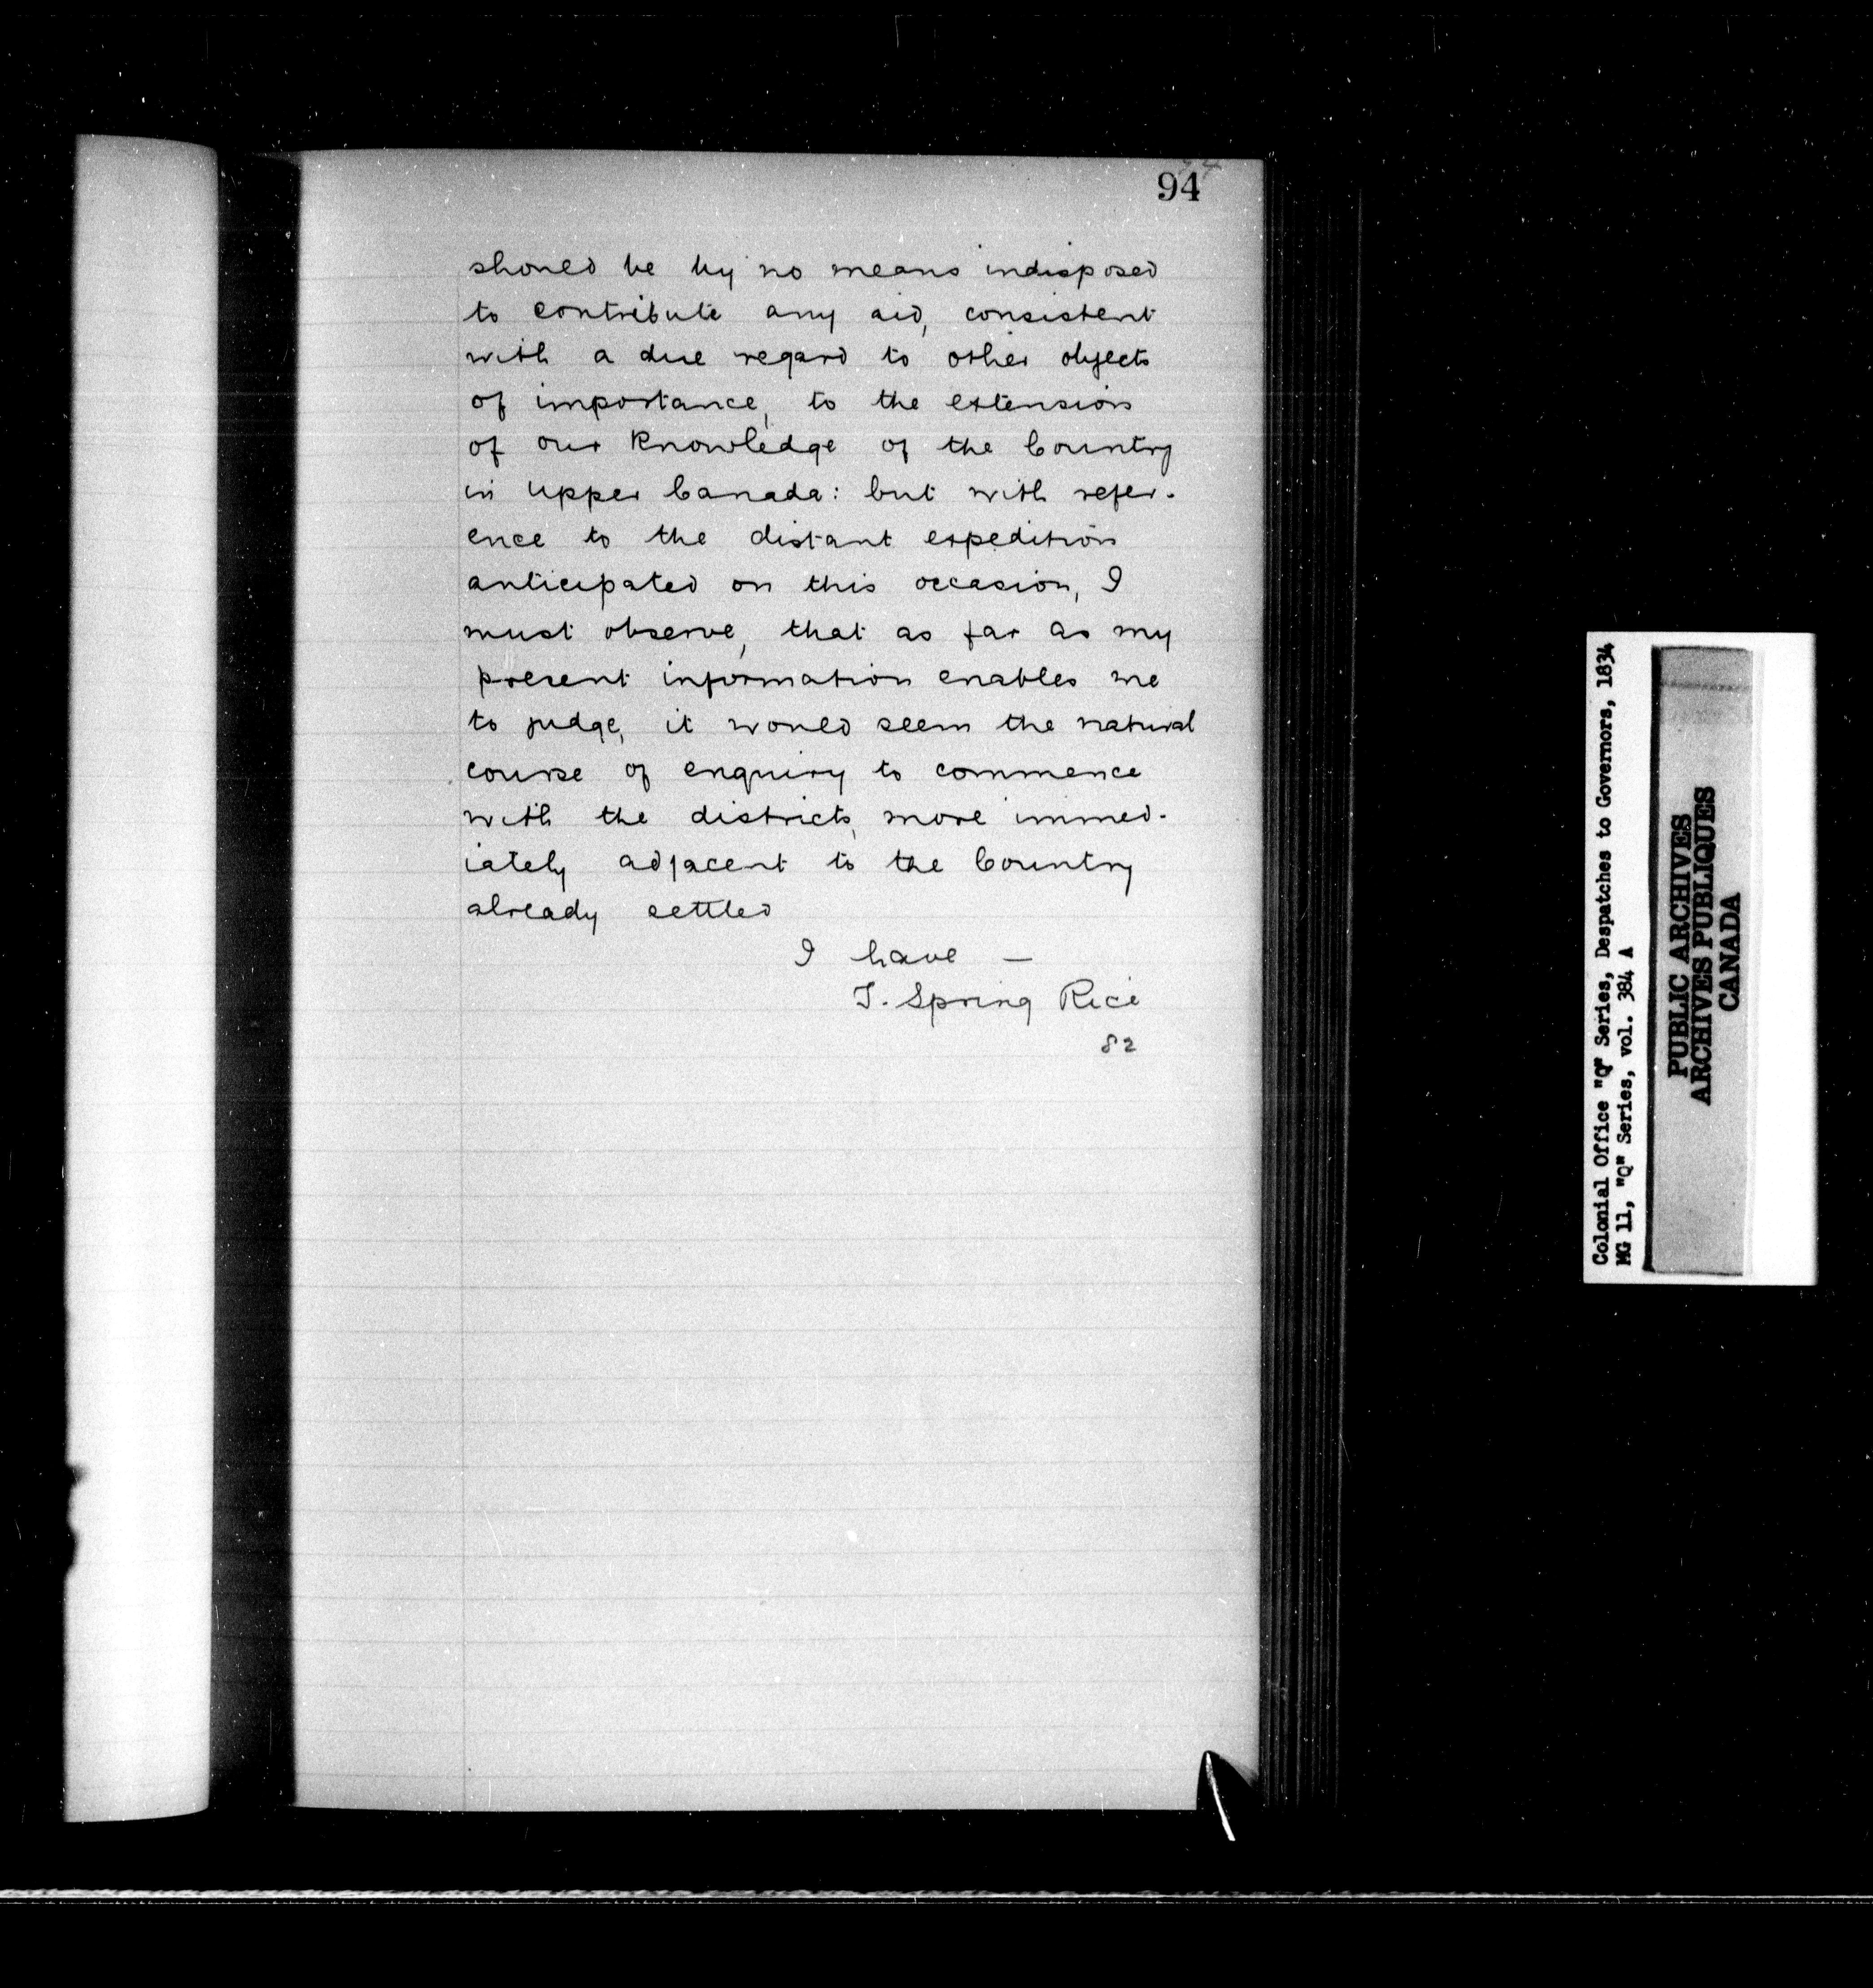 94
should be by no means indisposed
to contribute any aid, consistent
with a due regard to other objects
of importance, to the extension
of our Knowledge of the Country
in Upper Canada: but with refer-
ence to the distant expedition
anticipated on this occasion, I
must observe, that as far as my
present information enables me
to judge, it would seem the natural
course of enquiry to commence
with the districts, more immed-
iately adjacent to the Country
already settled
I have —
T. Spring Rice
82
Colonial Office "Q" Series, Despatches to Governors, 1834
MG 11, "Q" Series, vol. 384 A
PUBLIC ARCHIVES
ARCHIVES PUBLIQUES
CANADA